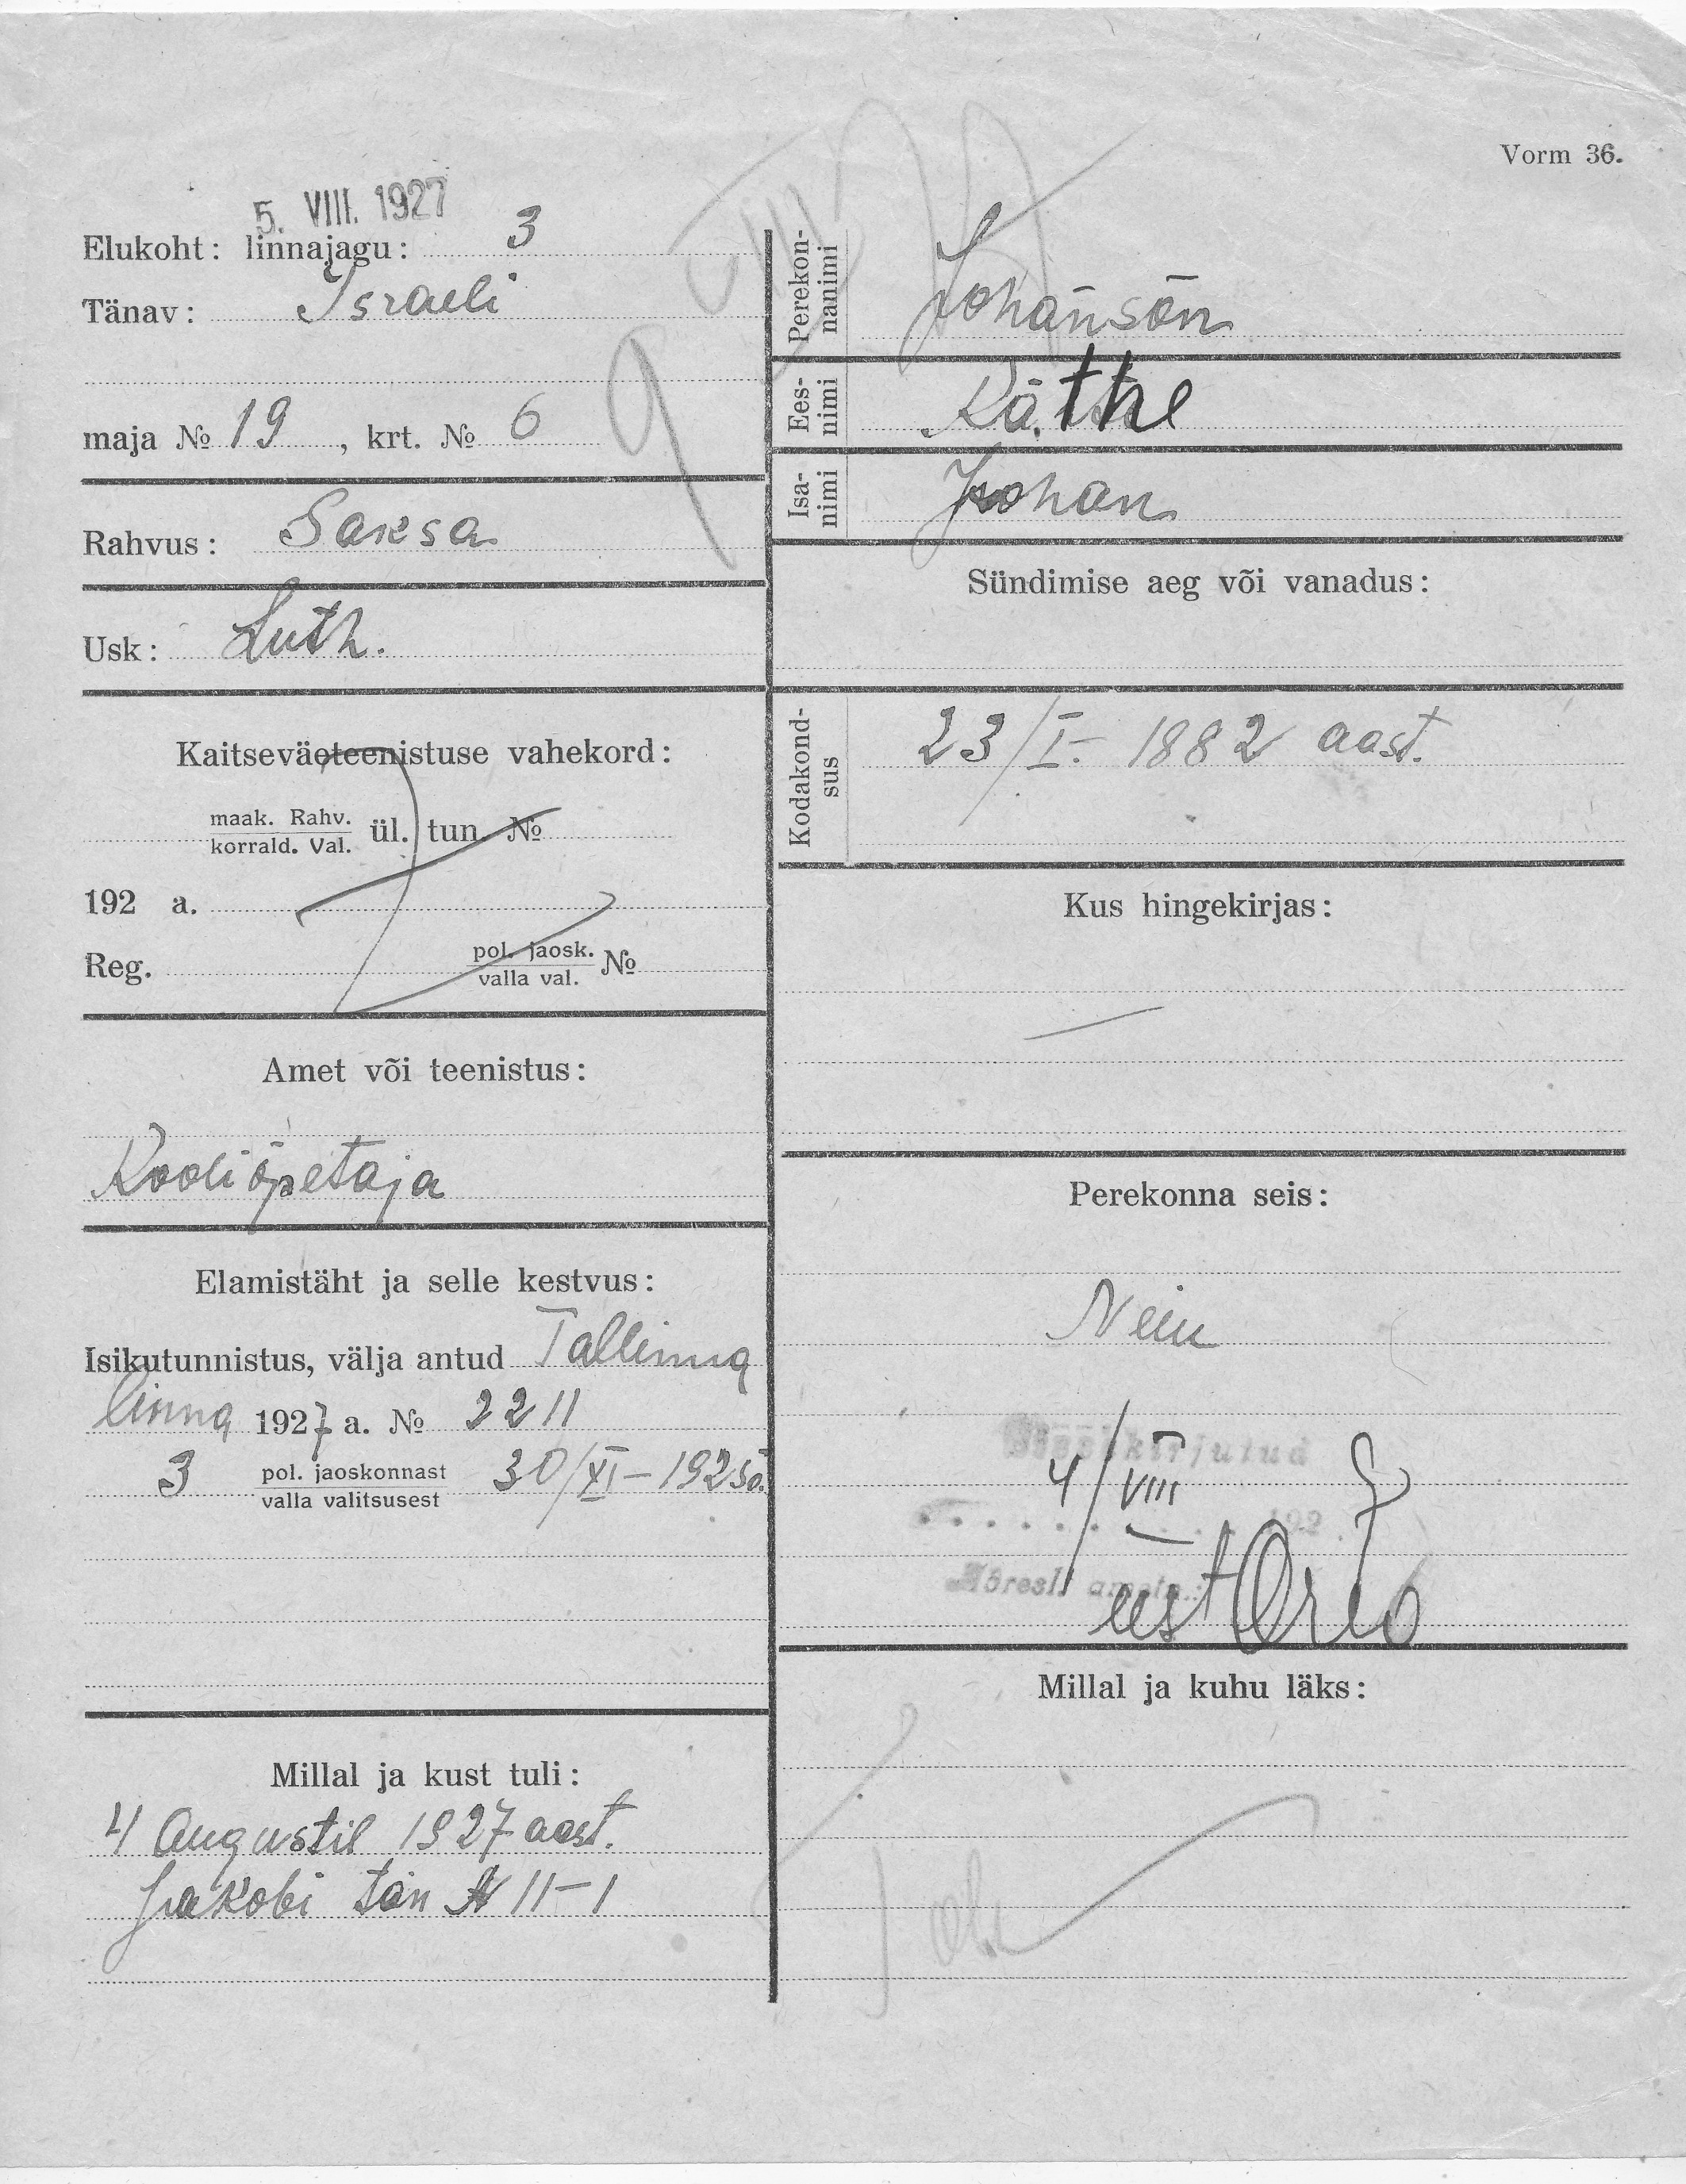 Vorm 36.
5. VIII. 1927
Elukoht: linnajagu: 3
Tänav: Israeli
maja № 19, krt. № 6
Rahvus: Saksa
Usk: Luth.
Kaitseväeteenistuse vahekord:
maak. Rahv.
korrald. Val. ül. tun. №
192 a.
Reg. pol. jaosk.
valla val. №
Amet või teenistus:
Kooliõpetaja
Elamistäht ja selle kestvus:
Isikutunnistus, välja antud Tallinna
linna 1927 a. № 2211
3 pol. jaoskonnast 30/XI – 192
valla valitsusest
Millal ja kust tuli:
4 Augustil 1927 aast.
Jakobi tän № 11–1
Perekon-
nanimi
Johanson
Ees-
nimi
Käthe
Isa-
nimi
Johan
Sündimise aeg või vanadus:
Kodakond-
sus
23/I. 1882 aast.
Kus hingekirjas:
Perekonna seis:
Neiu
4/VIII
192
eest
Millal ja kuhu läks: